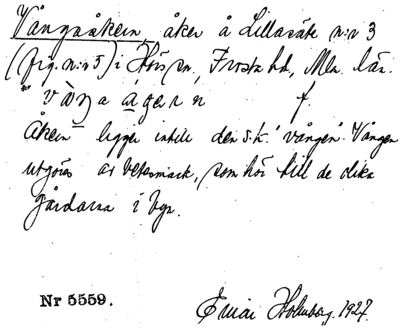 Vångaåkern, åker å Lillasäte n:r 3
(fig. n:r 5) i Hörs sn, Frosta hd, Mlm. län.
våŋa agern f.
Åkern ligger intill den s.k. "vången". Vången
utgöres av betesmark, som hör till de olika
gårdarna i byn.
Nr 5559.
Holmberg. 1927.